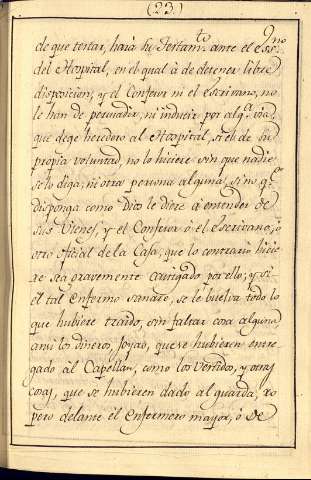 (23.)
de que testar, hará su Testam.to ante el Ess.no
del Hospital, en el qual à de detener libre
disposicion; y el Confesor ni el escrivano, no
le han de persuadir, ni inducir por alg.a via,
que dege heredero al Hospital, si el de su
propia voluntad, no lo hiciere sin que nadie
se lo diga, ni otra persona alguna, sino q.e
disponga como Dios le diere à entender de
sus vienes, y el Confesor ó el escrivano, ó
otro oficial de la Casa, que lo contrario hicie
re sea gravemente castigado por ello; y si
el tal enfermo sanare, se le buelva todo lo
que hubiere traido, sin faltar cosa alguna
assi los dineros, joyas, que se hubieren entre
gado al Capellan, como los vestidos, y otras
cosas, que se hubieren dado al guarda, ro
pero delante el enfermero mayor, ó de